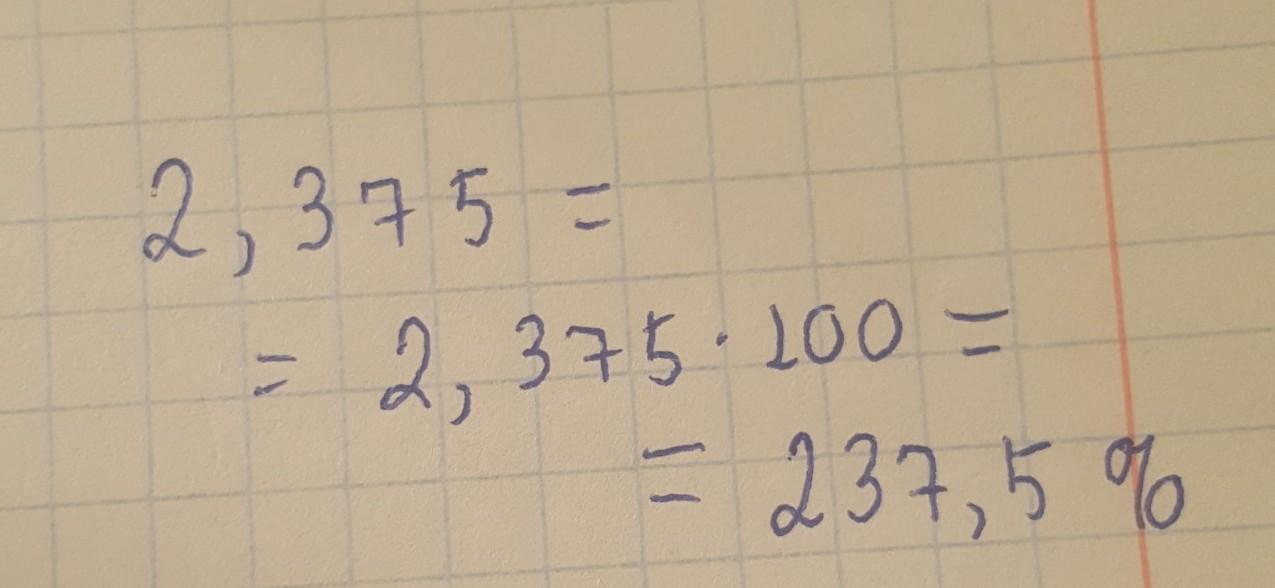 2,375 =
= 2,375 · 100 =
= 237,5 %